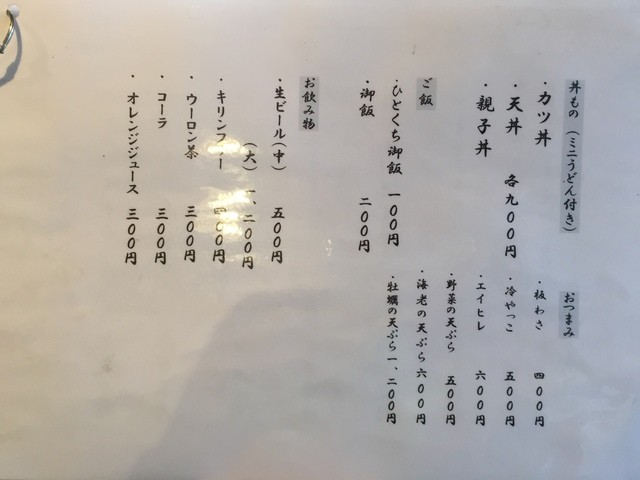 丼もの（ミニうどん付き）
・カツ丼
・天丼 各九００円
・親子丼
ご飯
・ひとくち御飯 一００円
・御飯 二００円
お飲み物
・生ビール（中） 五００円
（大）一、二００円
・キリンフリー 四００円
・ウーロン茶 三００円
・コーラ 三００円
・オレンジジュース 三００円
おつまみ
・板わさ 四００円
・冷やっこ 五００円
・エイヒレ 六００円
・野菜の天ぷら 五００円
・海老の天ぷら 六００円
・牡蠣の天ぷら 一、二００円